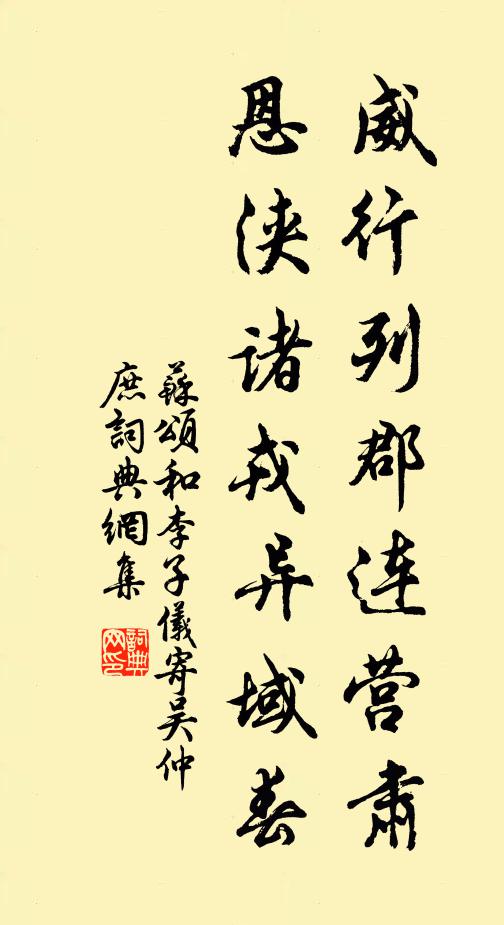 威行列郡连营肃
恩浃诸戎异域春
蘇頌和李子儀寄吴仲
庶詞典網集
詞典网印